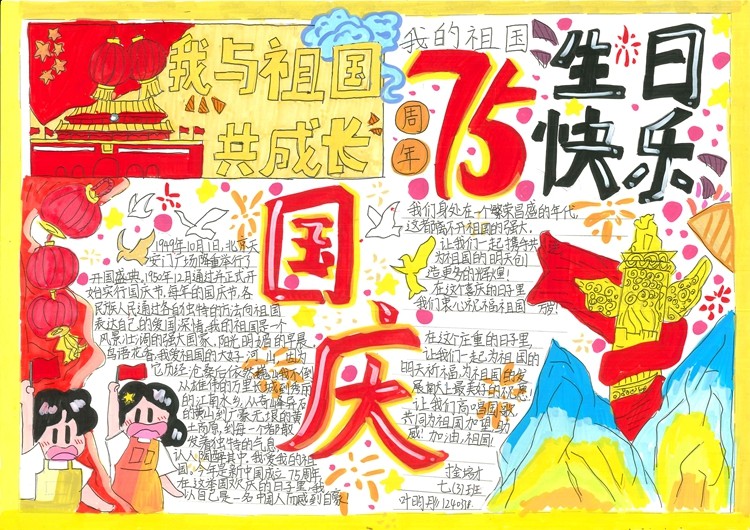 我与祖国
共成长
我的祖国
75
周年
生日
快乐
国庆
1949年10月1日,北京天
安门广场隆重举行了
开国盛典,1950年12月通过并正式开
始实行国庆节,每年的国庆节,各
民族人民通过各自独特的方法向祖国
表达自己的爱国深情,我的祖国是一个
风景壮阔的强大国家,阳光明媚的早晨
鸟语花香,我爱祖国的大好河山,因为
它历经沧桑后依然巍峨不倒
从雄伟的万里长城到秀丽
的江南水乡,从奇峰异石
的黄山到广袤无垠的黄
土高原,到每一个都散
发着独特的气息
认人陶醉其中,我爱我的祖
国,今年是新中国成立75周年
在这举国欢庆的日子里,我
以自己是一名中国人而感到自豪
我们身处在一个繁荣昌盛的年代,
这者离不开祖国的强大,
让我们一起携手共
为祖国的明天创
造更多的辉煌!
在这个喜庆的日子里
我们衷心祝福祖国
在这个庄重的日子里,
让我们一起为祖国的
明天祈福,为祖国的发
展献上最美好的祝愿
让我们高唱国歌
共同为祖国加望助
威!加油,祖国!
七(3)班
叶明月